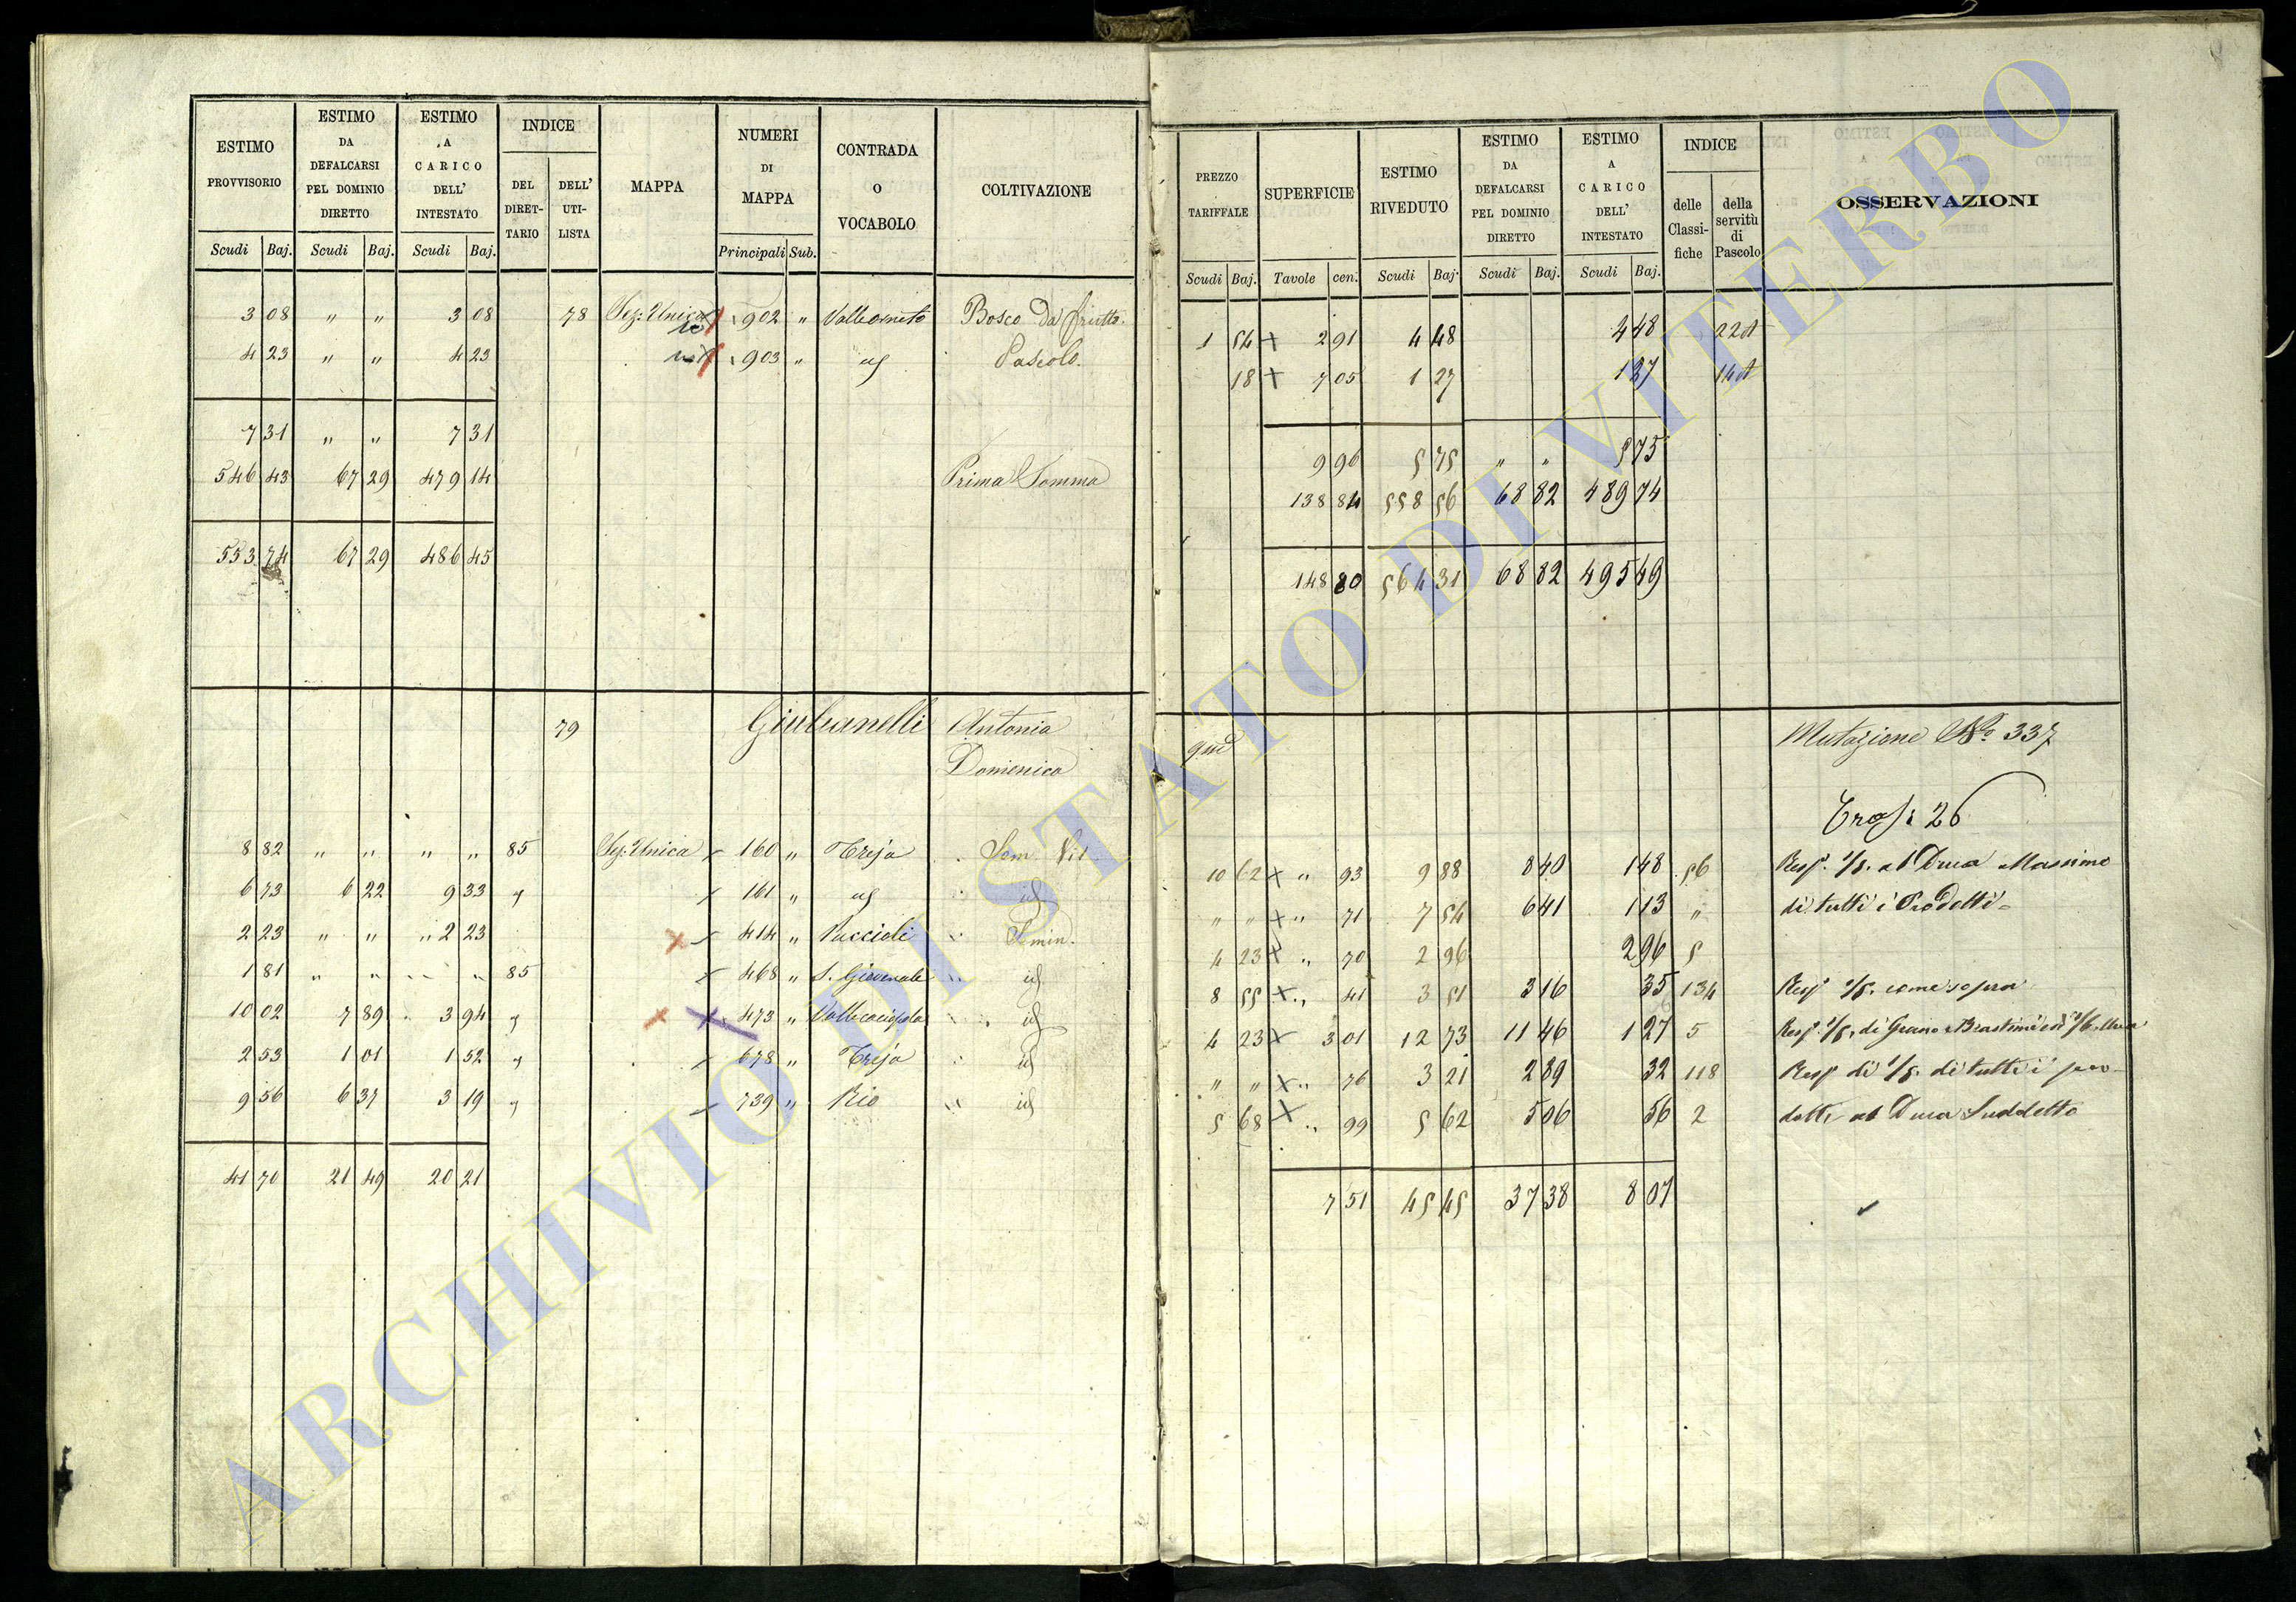 ESTIMO PROVVISORIO | ESTIMO DA DEFALCARSI PEL DOMINIO DIRETTO | ESTIMO A CARICO DELL' INTESTATO | INDICE | MAPPA | NUMERI DI MAPPA | CONTRADA O VOCABOLO | COLTIVAZIONE
DEL DIRET-TARIO | DELL' UTI-LISTA
Scudi | Baj. | Scudi | Baj. | Scudi | Baj. | Principali | Sub.
3 08 " " 3 08 78 Sez. Unica 902 " Bosco da frutto.
4 23 " " 4 23 903 " id Pascolo.
7 31 " " 7 31
546 43 67 29 479 14 Prima Somma
553 74 67 29 486 45
79 Giubanelli Antonia
Domenica
8 82 " " " " 85 Sez. Unica 160 " Treja Sem. Vit.
6 73 6 22 9 33 " 161 " id id
2 23 " " " 2 23 414 " Puccioli Semin.
1 81 " " " " 85 468 " S. Giovenale id
10 02 7 89 3 94 " 473 " id
2 53 1 01 1 52 " 678 " Treja id
9 56 6 37 3 19 " 739 " Rio id
41 70 21 49 20 21
PREZZO TARIFFALE | SUPERFICIE | ESTIMO RIVEDUTO | ESTIMO DA DEFALCARSI PEL DOMINIO DIRETTO | ESTIMO A CARICO DELL' INTESTATO | INDICE | OSSERVAZIONI
delle Classi-fiche | della servitù di Pascolo
Scudi | Baj. | Tavole | cen. | Scudi | Baj. | Scudi | Baj. | Scudi | Baj.
1 54 + 2 91 4 48 4 48 22A
18 + 7 05 1 27 1 27 14A
9 96 5 75 " " 5 75
138 84 558 56 68 82 489 74
148 80 564 31 68 82 495 49
qm Mutazione No. 337
26
10 62 x " 93 9 88 8 40 1 48 56 Resp. 1/8. al Duca Massimo
" " x " 71 7 54 6 41 1 13 " di tutti i Prodotti =
4 23 x " 70 2 96 2 96 5
8 55 x " 41 3 51 3 16 35 134 Resp 1/8. come sopra
4 23 x 3 01 12 73 11 46 1 27 5 Resp. 1/8. di Grano
" " x " 76 3 21 2 89 32 118 Resp di 1/8. di tutti i pro-
5 68 x " 99 5 62 5 06 56 2 dotti al Duca Suddetto
7 51 45 45 37 38 8 07
ARCHIVIO DI STATO DI VITERBO